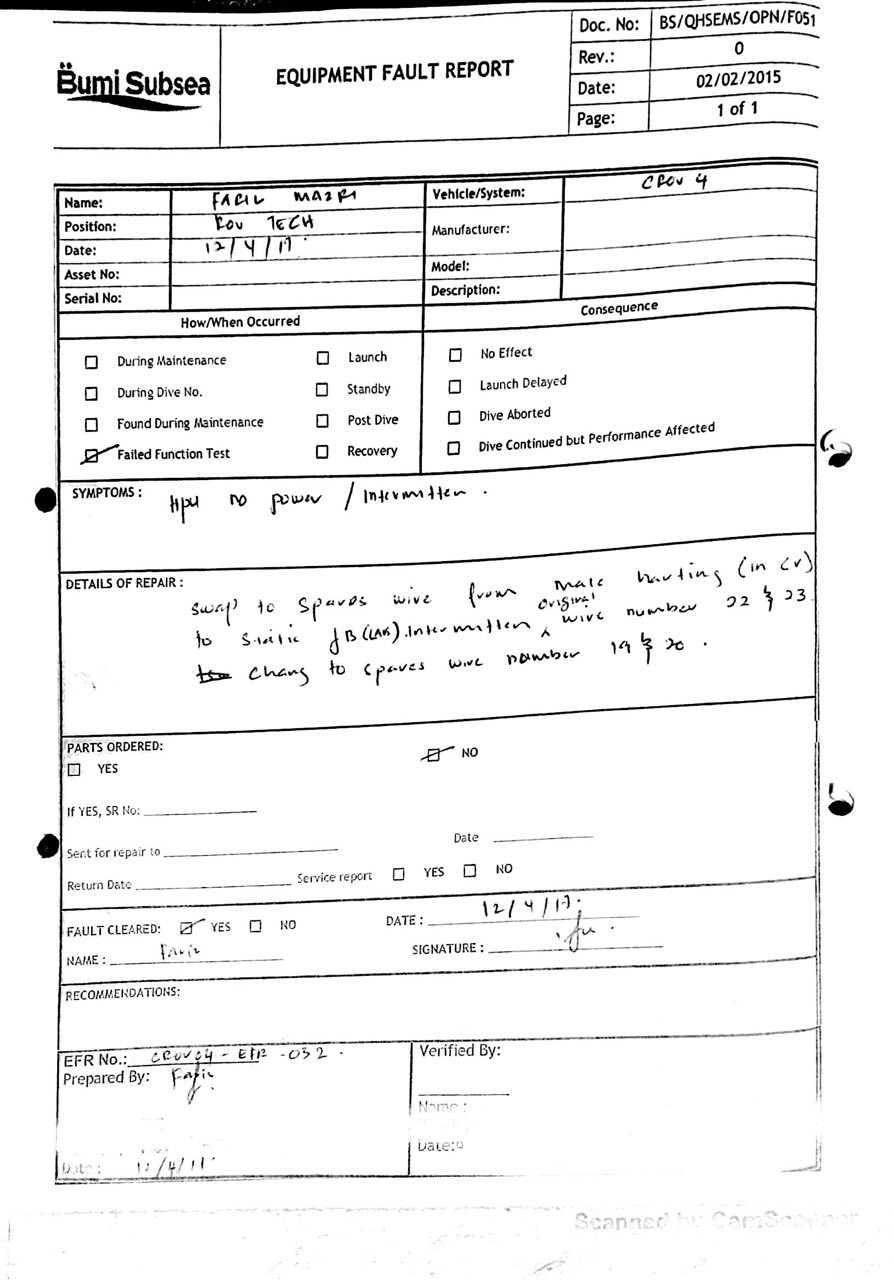 Bumi Subsea
EQUIPMENT FAULT REPORT
Doc. No: BS/QHSEMS/OPN/F051
Rev.: 0
Date: 02/02/2015
Page: 1 of 1
Name: FARIL MAZRI Vehicle/System: CROV 4
Position: ROV TECH Manufacturer:
Date: 12/4/17
Asset No: Model:
Serial No: Description:
How/When Occurred Consequence
During Maintenance Launch No Effect
During Dive No. Standby Launch Delayed
Found During Maintenance Post Dive Dive Aborted
Failed Function Test Recovery Dive Continued but Performance Affected
SYMPTOMS : HPU no power / Intermitten .
DETAILS OF REPAIR :
swap to spares wire from male harting (in CV)
to static JB (LARS). Intermitten original wire number 22 & 23
chang to spares wire number 19 & 20 .
PARTS ORDERED:
YES NO
If YES, SR No:
Sent for repair to Date
Return Date Service report YES NO
FAULT CLEARED: YES NO DATE : 12/4/17.
NAME : Faril SIGNATURE :
RECOMMENDATIONS:
EFR No.: CROV04 - EFR - 032 . Verified By:
Prepared By: Faril
Name :
Date:
Date : 12/4/17
Scanned by CamScanner